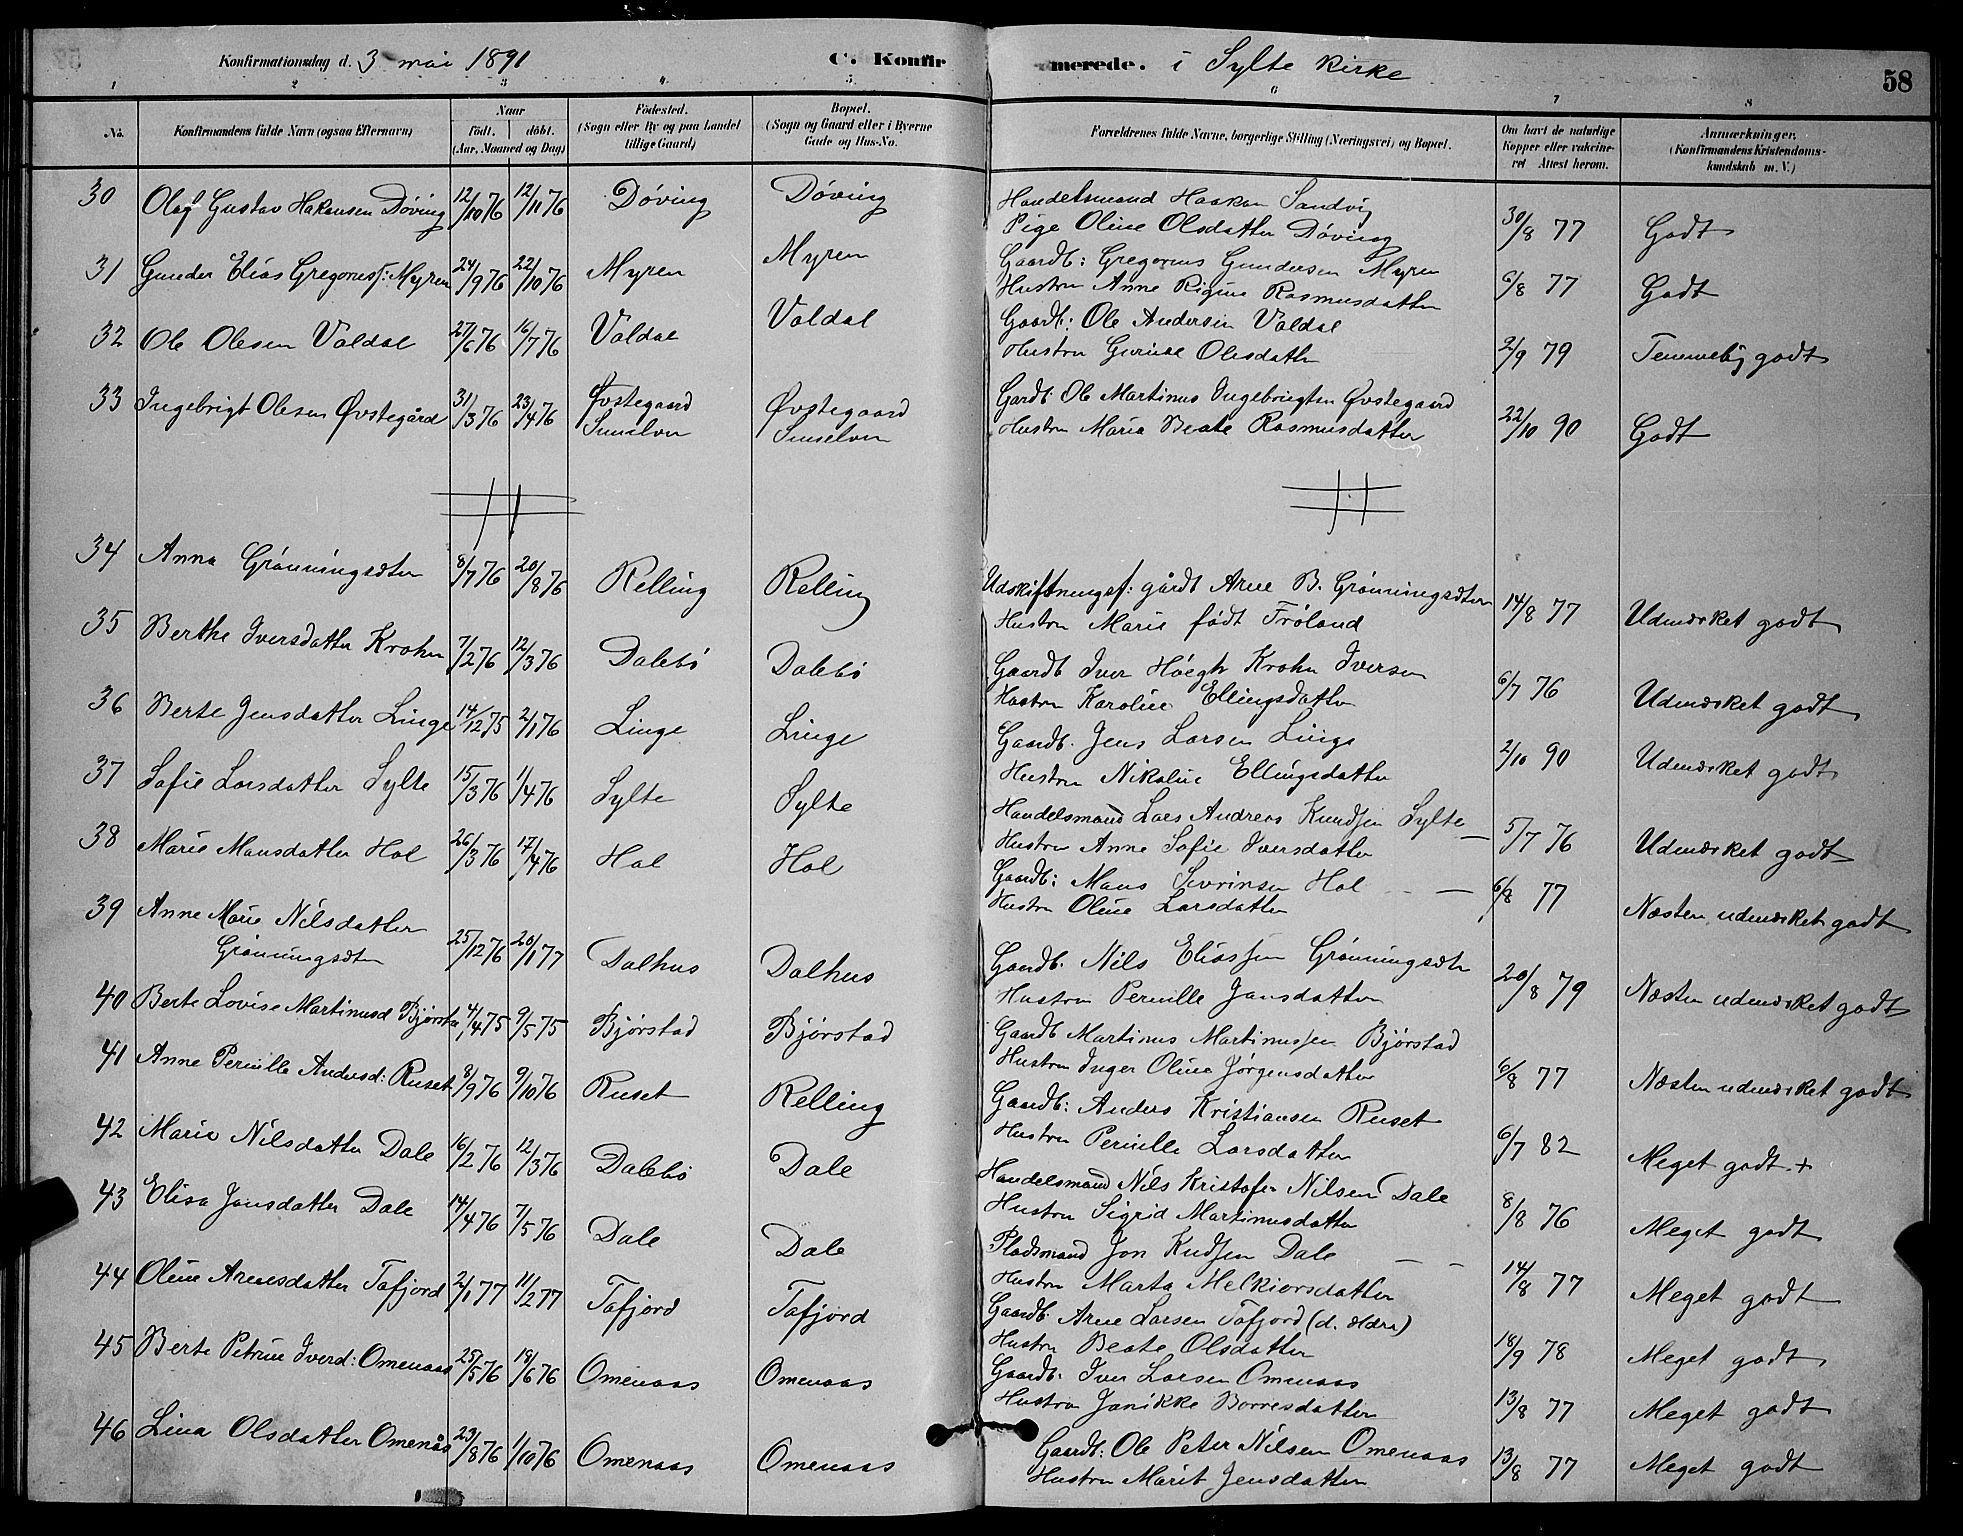 Konfirmationsdag d. 3 mai 1891 C. Konfirmerede. i Sylte kirke 58
1 2 3 4 5 6 7 8
No. Konfirmandens fulde Navn (ogsaa Efternavn) Naar født. døbt. (Aar, Maaned og Dag) Fødested. (Sogn eller By og paa Landet tillige Gaard) Bopæl. (Sogn og Gaard eller i Byerne Gade og Hus-No. Forældrenes fulde Navne, borgerlige Stilling (Næringsvei) og Bopæl. Om havt de naturlige Kopper eller vakcineret Attest herom. Anmærkninger. (Konfirmandens Kristendomskundskab m. V.)
30 Olaf Gustav Hakensen Döving 12/10 76 12/11 76 Döving Döving Handelsmand Haakon Sandvig
Pige Oline Olsdatter Döving 30/8 77 Godt
31 Gunder Elias Gregoriusf: Myren 24/9 76 22/10 76 Myren Myren Gaardb: Gregorius Gundersen Myren
Hustru Anne Regine Rasmusdatter 6/8 77 Godt
32 Ole Olesen Valdal 27/6 76 16/7 76 Valdal Valdal Gaardb: Ole Andersen Valdal
Hustru Gurine Olesdatter 2/9 79 Temmelig godt
33 Ingebrigt Olesen Øvstegård 31/3 76 23/4 76 Øvstegaard Sunelven Øvstegaard Sunelven Gardb: Ole Martinus Ingebrigtsn Øvstegaard
Hustru Maria Beate Rasmusdatter 22/10 90 Godt
34 Anna Grönningsæter 8/7 76 20/8 76 Relling Relling Udskiftningsf: gårdb Arne B. Grönningsæter
Hustru Marie født Fröland 14/8 77 Udmærket godt
35 Berthe Iversdatter Krohn 7/2 76 12/3 76 Dalebö Dalebö Gaardb Iver Höegh Krohn Iversen
Hustru Karoline Ellingsdatter 6/7 76 Udmærket godt
36 Berte Jensdatter Linge 14/12 75 2/1 76 Linge Linge Gaardb. Jens Larsen Linge
Hustru Nikoline Ellingsdatter 2/10 90 Udmærket godt
37 Sofie Larsdatter Sylte 15/3 76 1/4 76 Sylte Sylte Handelsmand Lars Andreas Knudsen Sylte
Hustru Anne Sofie Iversdatter 5/7 76 Udmærket godt
38 Marie Mansdatter Hol 26/3 76 17/4 76 Hol Hol Gaardb: Mans Sevrinsen Hol
Hustru Oline Larsdatter 6/8 77 Næsten udmærket godt
39 Anne Marie Nilsdatter
Grönningsæter 25/12 76 20/1 77 Dalhus Dalhus Gaardb. Nils Eliassen Grönningsæter
Hustru Pernille Jansdatter 20/8 79 Næsten udmærket godt
40 Berte Lovise Martinusd Björsta 4/4 75 9/5 75 Björstad Björstad Gaardb Martinus Martinussen Björstad
Hustru Inger Oline Jörgensdatter 6/8 77 Næsten udmærket godt
41 Anne Pernille Andersd: Ruset 8/9 76 9/10 76 Ruset Relling Gaardb: Anders Kristiansen Ruset
Hustru Pernille Larsdatter 6/7 82 Meget godt +
42 Marie Nilsdatter Dale 16/2 76 12/3 76 Dalebö Dale Handelsmand Nils Kristofer Nilsen Dale
Hustru Sigrid Martinusdatter 8/8 76 Meget godt
43 Elisa Jonsdatter Dale 14/4 76 7/5 76 Dale Dale Pladsmand Jon Knudsen Dale
Hustru Marta Melkiorsdatter 14/8 77 Meget godt
44 Oline Arnesdatter Tafjord 2/1 77 11/2 77 Tafjord Tafjord Gaardb. Arne Larsen Tafjord (d. ældre)
Hustru Beate Olsdatter 18/9 78 Meget godt
45 Berte Petrine Iverd: Omenaas 25/5 76 18/6 76 Omenaas Omenaas Gaardb. Iver Larsen Omenaas
Hustru Janikke Borresdatter 13/8 77 Meget godt
46 Lina Olsdatter Omenås 23/8 76 1/10 76 Omenaas Omenaas Gaardb: Ole Peter Nilsen Omenaas
Hustru Marit Jensdatter 13/8 77 Meget godt